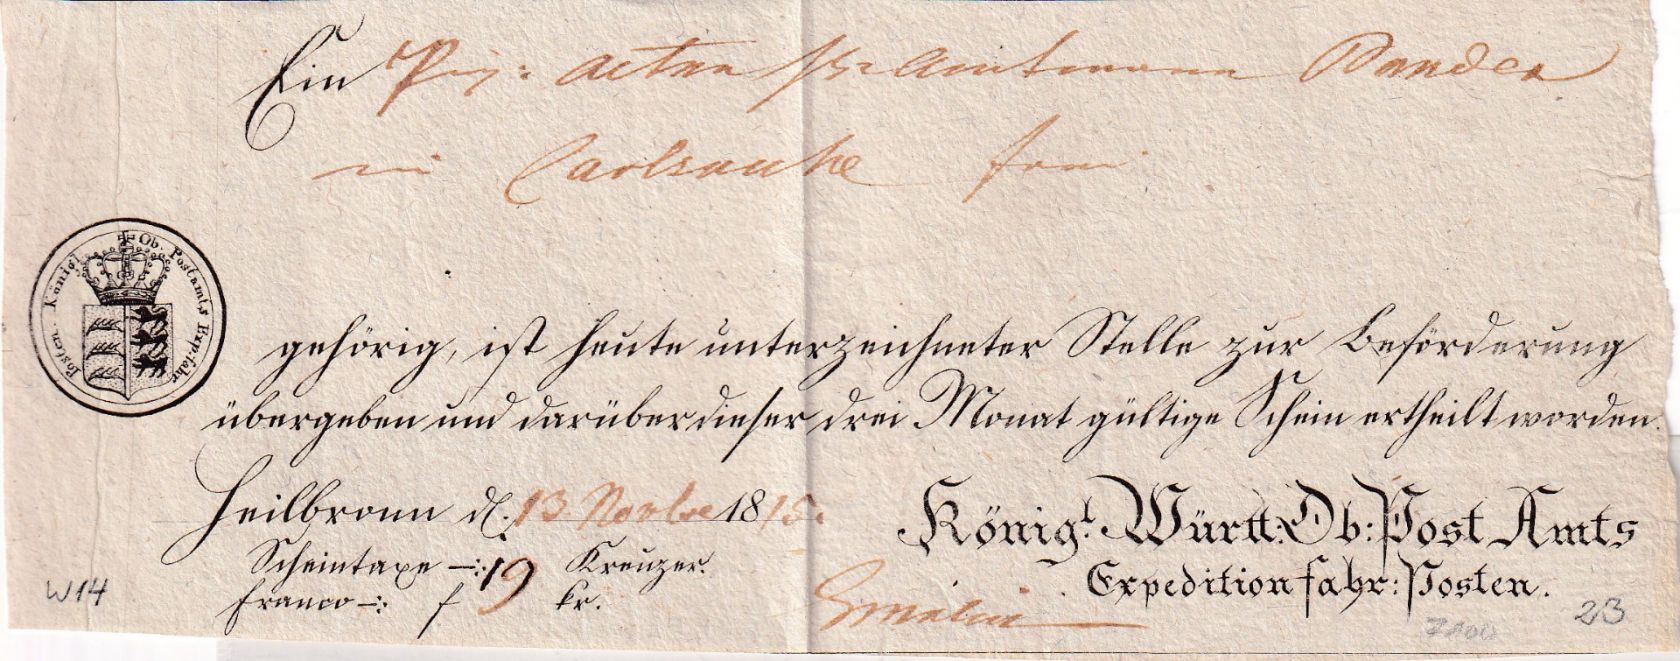 Ein Pq: Acten
in Carlsruhe frei
Königl. Ob. Postamts Exp: fahr. Posten.
gehörig, ist heute unterzeichneter Stelle zur Beförderung
übergeben und darüber dieser drei Monat gültige Schein ertheilt worden.
Heilbronn d. 13 Novbre 1815.
Königl. Württ: Ob: Post Amts
Scheintaxe -: Kreuzer.
Expedition fahr: Posten.
Franco -: f 19 kr.
W14
23